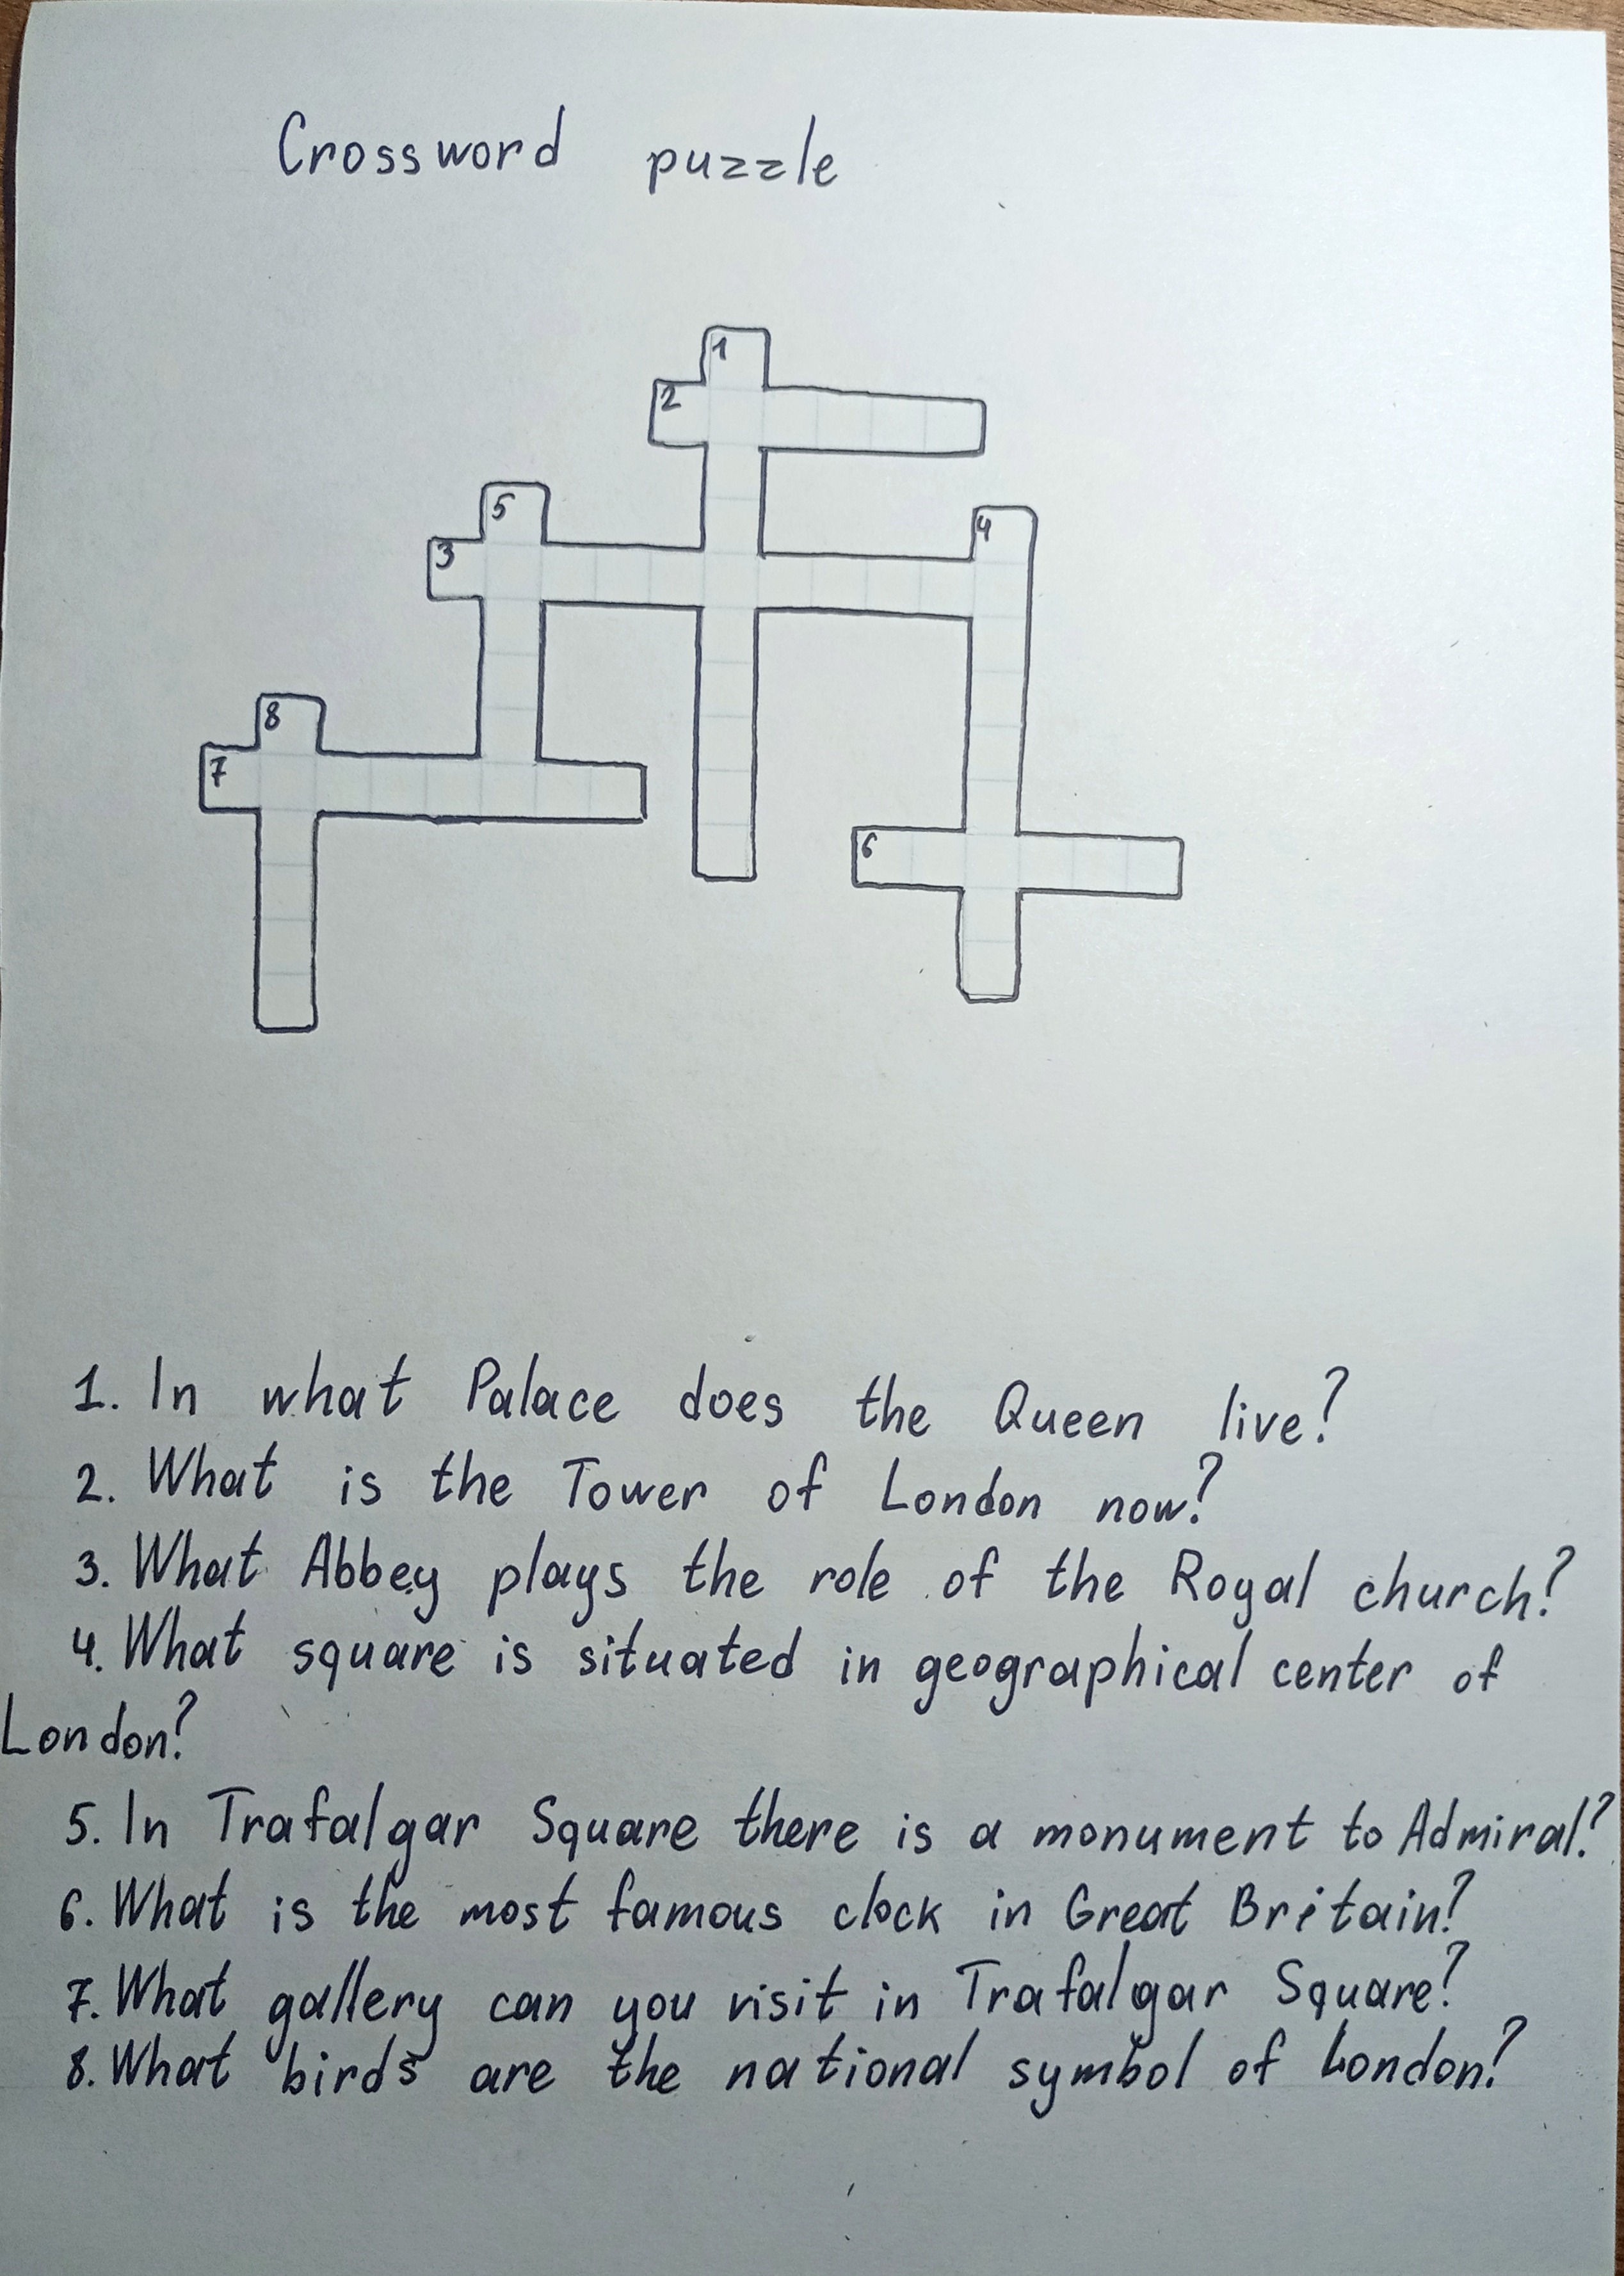 Crossword puzzle
1
2
5
4
3
8
7
6
1. In what Palace does the Queen live?
2. What is the Tower of London now?
3. What Abbey plays the role of the Royal church?
4. What square is situated in geographical center of
London?
5. In Trafalgar Square there is a monument to Admiral?
6. What is the most famous clock in Great Britain?
7. What gallery can you visit in Trafalgar Square?
8. What birds are the national symbol of London?